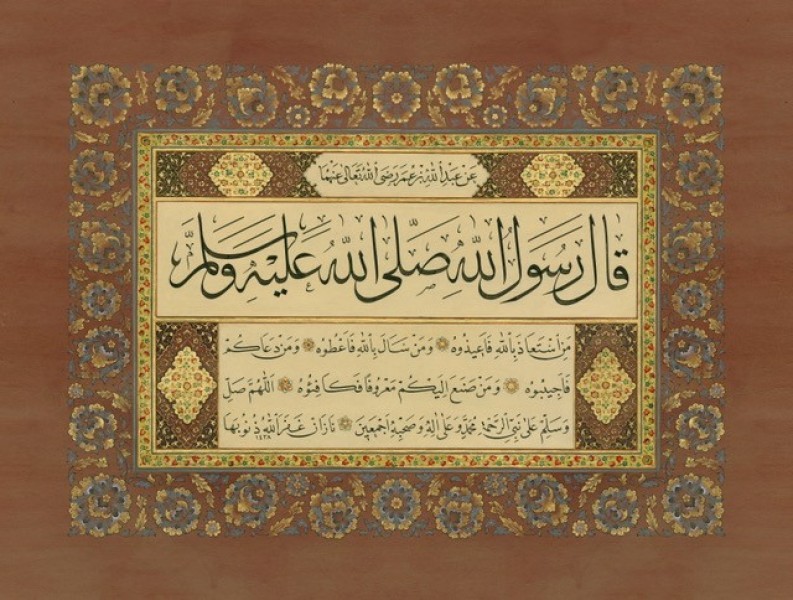 عَنْ عَبْدِ اللهِ بْنِ عُمَرَ رَضِيَ اللهُ تَعَالَى عَنْهُمَا
قَالَ رَسُولُ اللهِ صَلَّى اللهُ عَلَيْهِ وَسَلَّمَ
مَنِ اسْتَعَاذَ بِاللهِ فَاَعِيذُوهُ وَمَنْ سَاَلَ بِاللهِ فَاَعْطُوهُ وَمَنْ دَعَاكُمْ
فَاَجِيبُوهُ وَمَنْ صَنَعَ اِلَيْكُمْ مَعْرُوفًا فَكَافِئُوهُ اَللّٰهُمَّ صَلِّ
وَسَلِّمْ عَلٰى نَبِيِّ الرَّحْمَةِ مُحَمَّدٍ وَعَلٰى اٰلِهِ وَصَحْبِهِ اَجْمَعِينَ نَازَان غَفَرَ اللهُ ذُنُوبَهَا ١٤٣٨